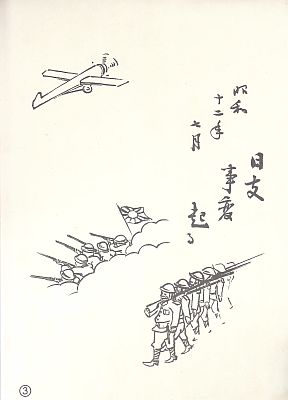 昭和
十二年
七月
日支
事変
起る
③